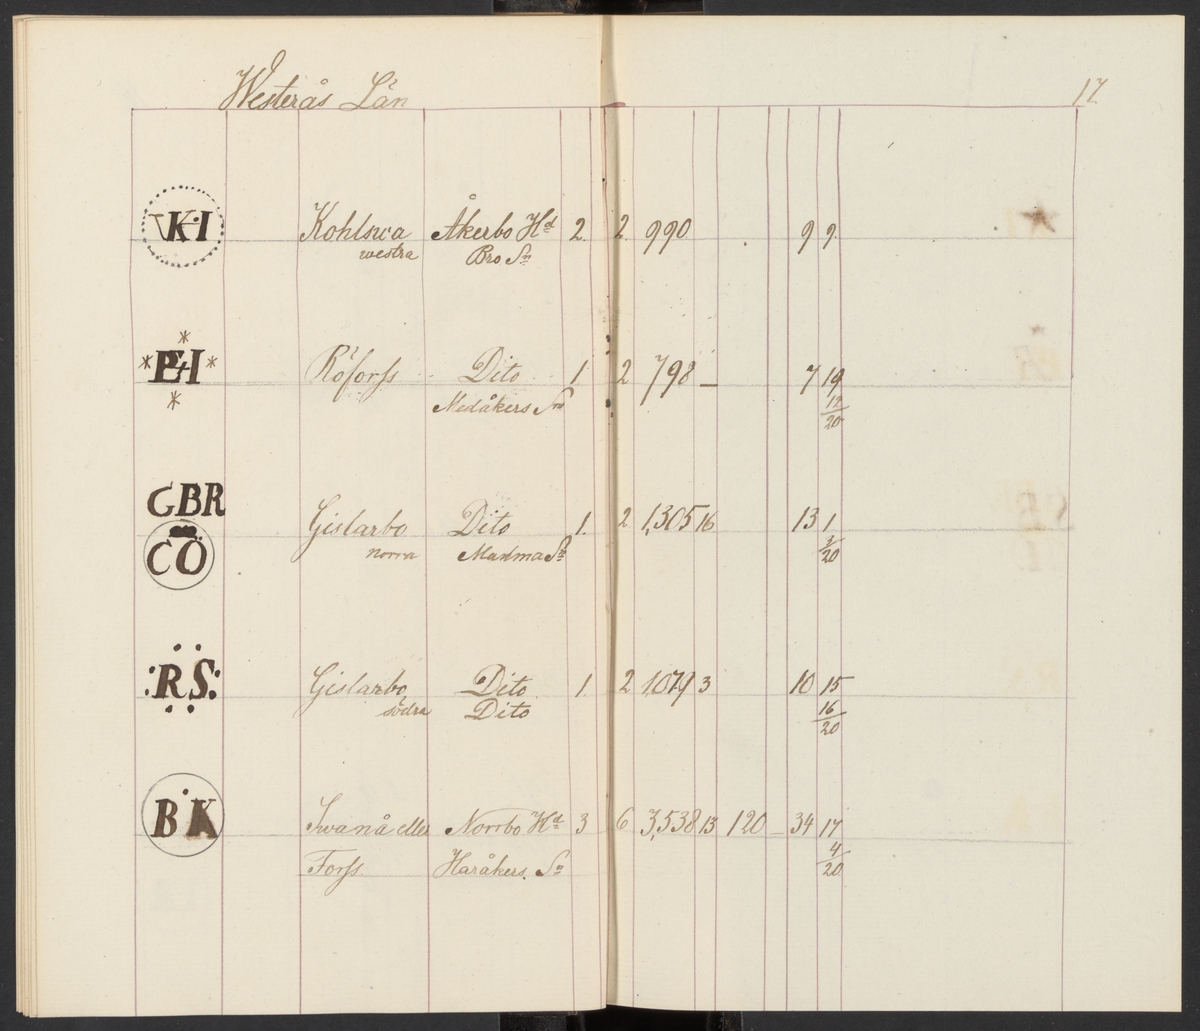 Westerås Län 17
VK·I Kohlswa Åkerbo Hd 2 2 990 9 9
westra Bro Sn
Röforss Dito 1 2 798 — 7 19
Medåkers Sn 12/20
GBR
CÖ Gislarbo Dito 1. 2 1,305 16 13 1
norra Malma Sn 3/20
R S Gislarbo Dito 1 2 1,079 3 10 15
södra Dito 16/20
B K Swanå eller Norrbo Hd 3 6 3,538 13 120 34 17
Forss Haråkers Sn 4/20